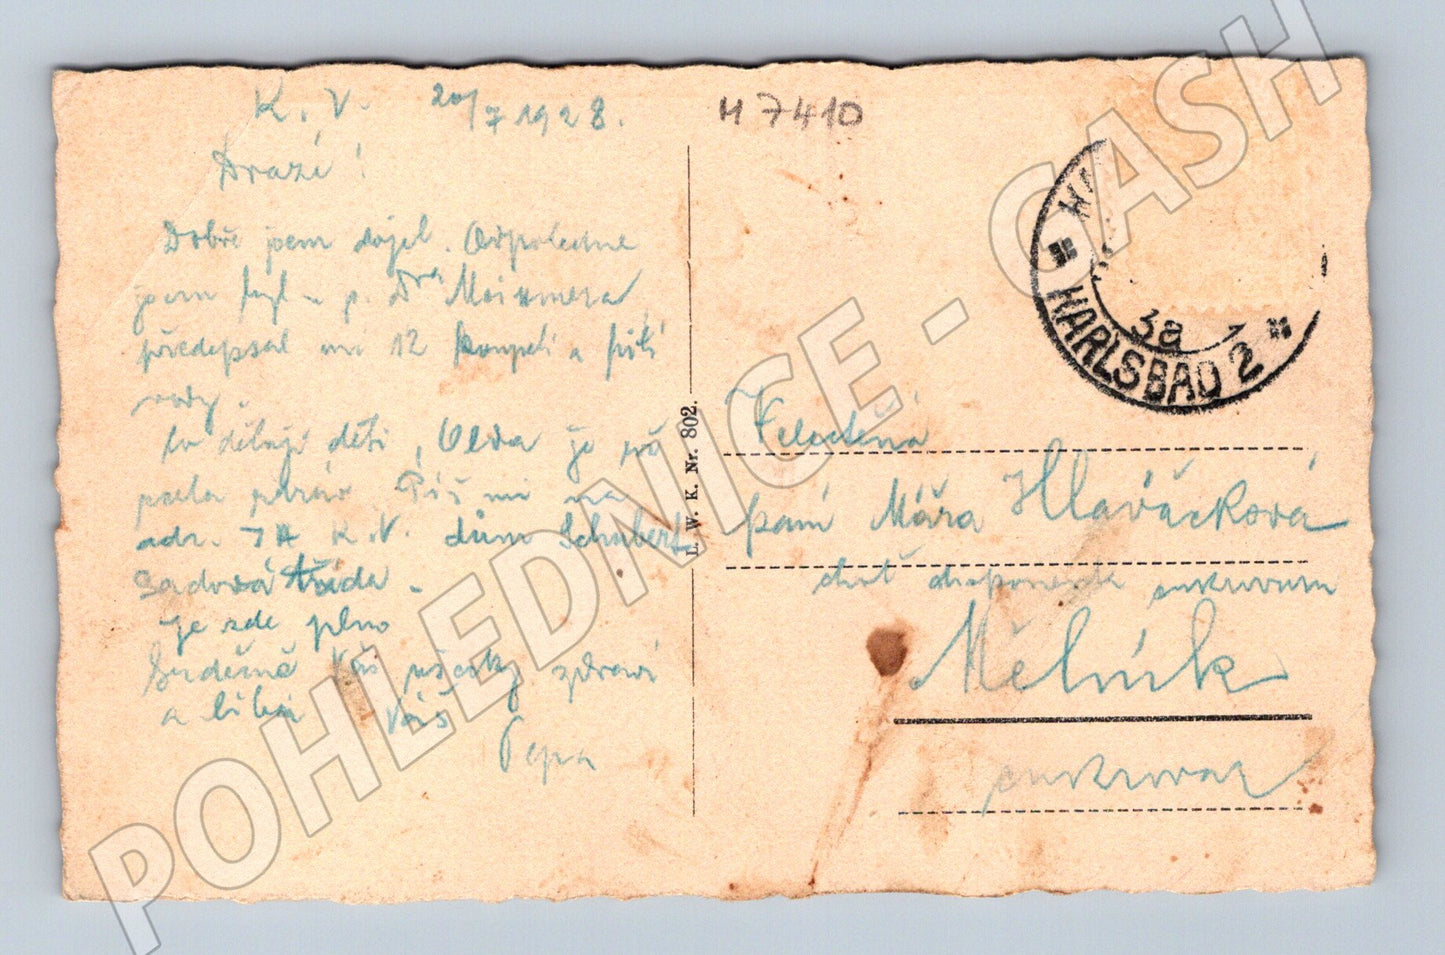 K. V. 20/7 1928.
M 7410
Drazí!
Dobře jsem dojel. Odpoledne
jsem byl u p. Dra
předepsal mi 12 koupelí a pití
vody.
Co dělají děti, Olda je
Píš mi na
adr. JH K.V. dům Schubert
Sadová třída.
Je zde plno
Srdečně Vás všecky zdraví
a líbá Váš
Pepa
L. W. K. Nr. 802.
KARLSBAD 2
38
Velectěná
paní Máňa Hlaváčková
choť disponenta cukrovaru
Mělník
cukrovar
POHLEDNICE - CASH